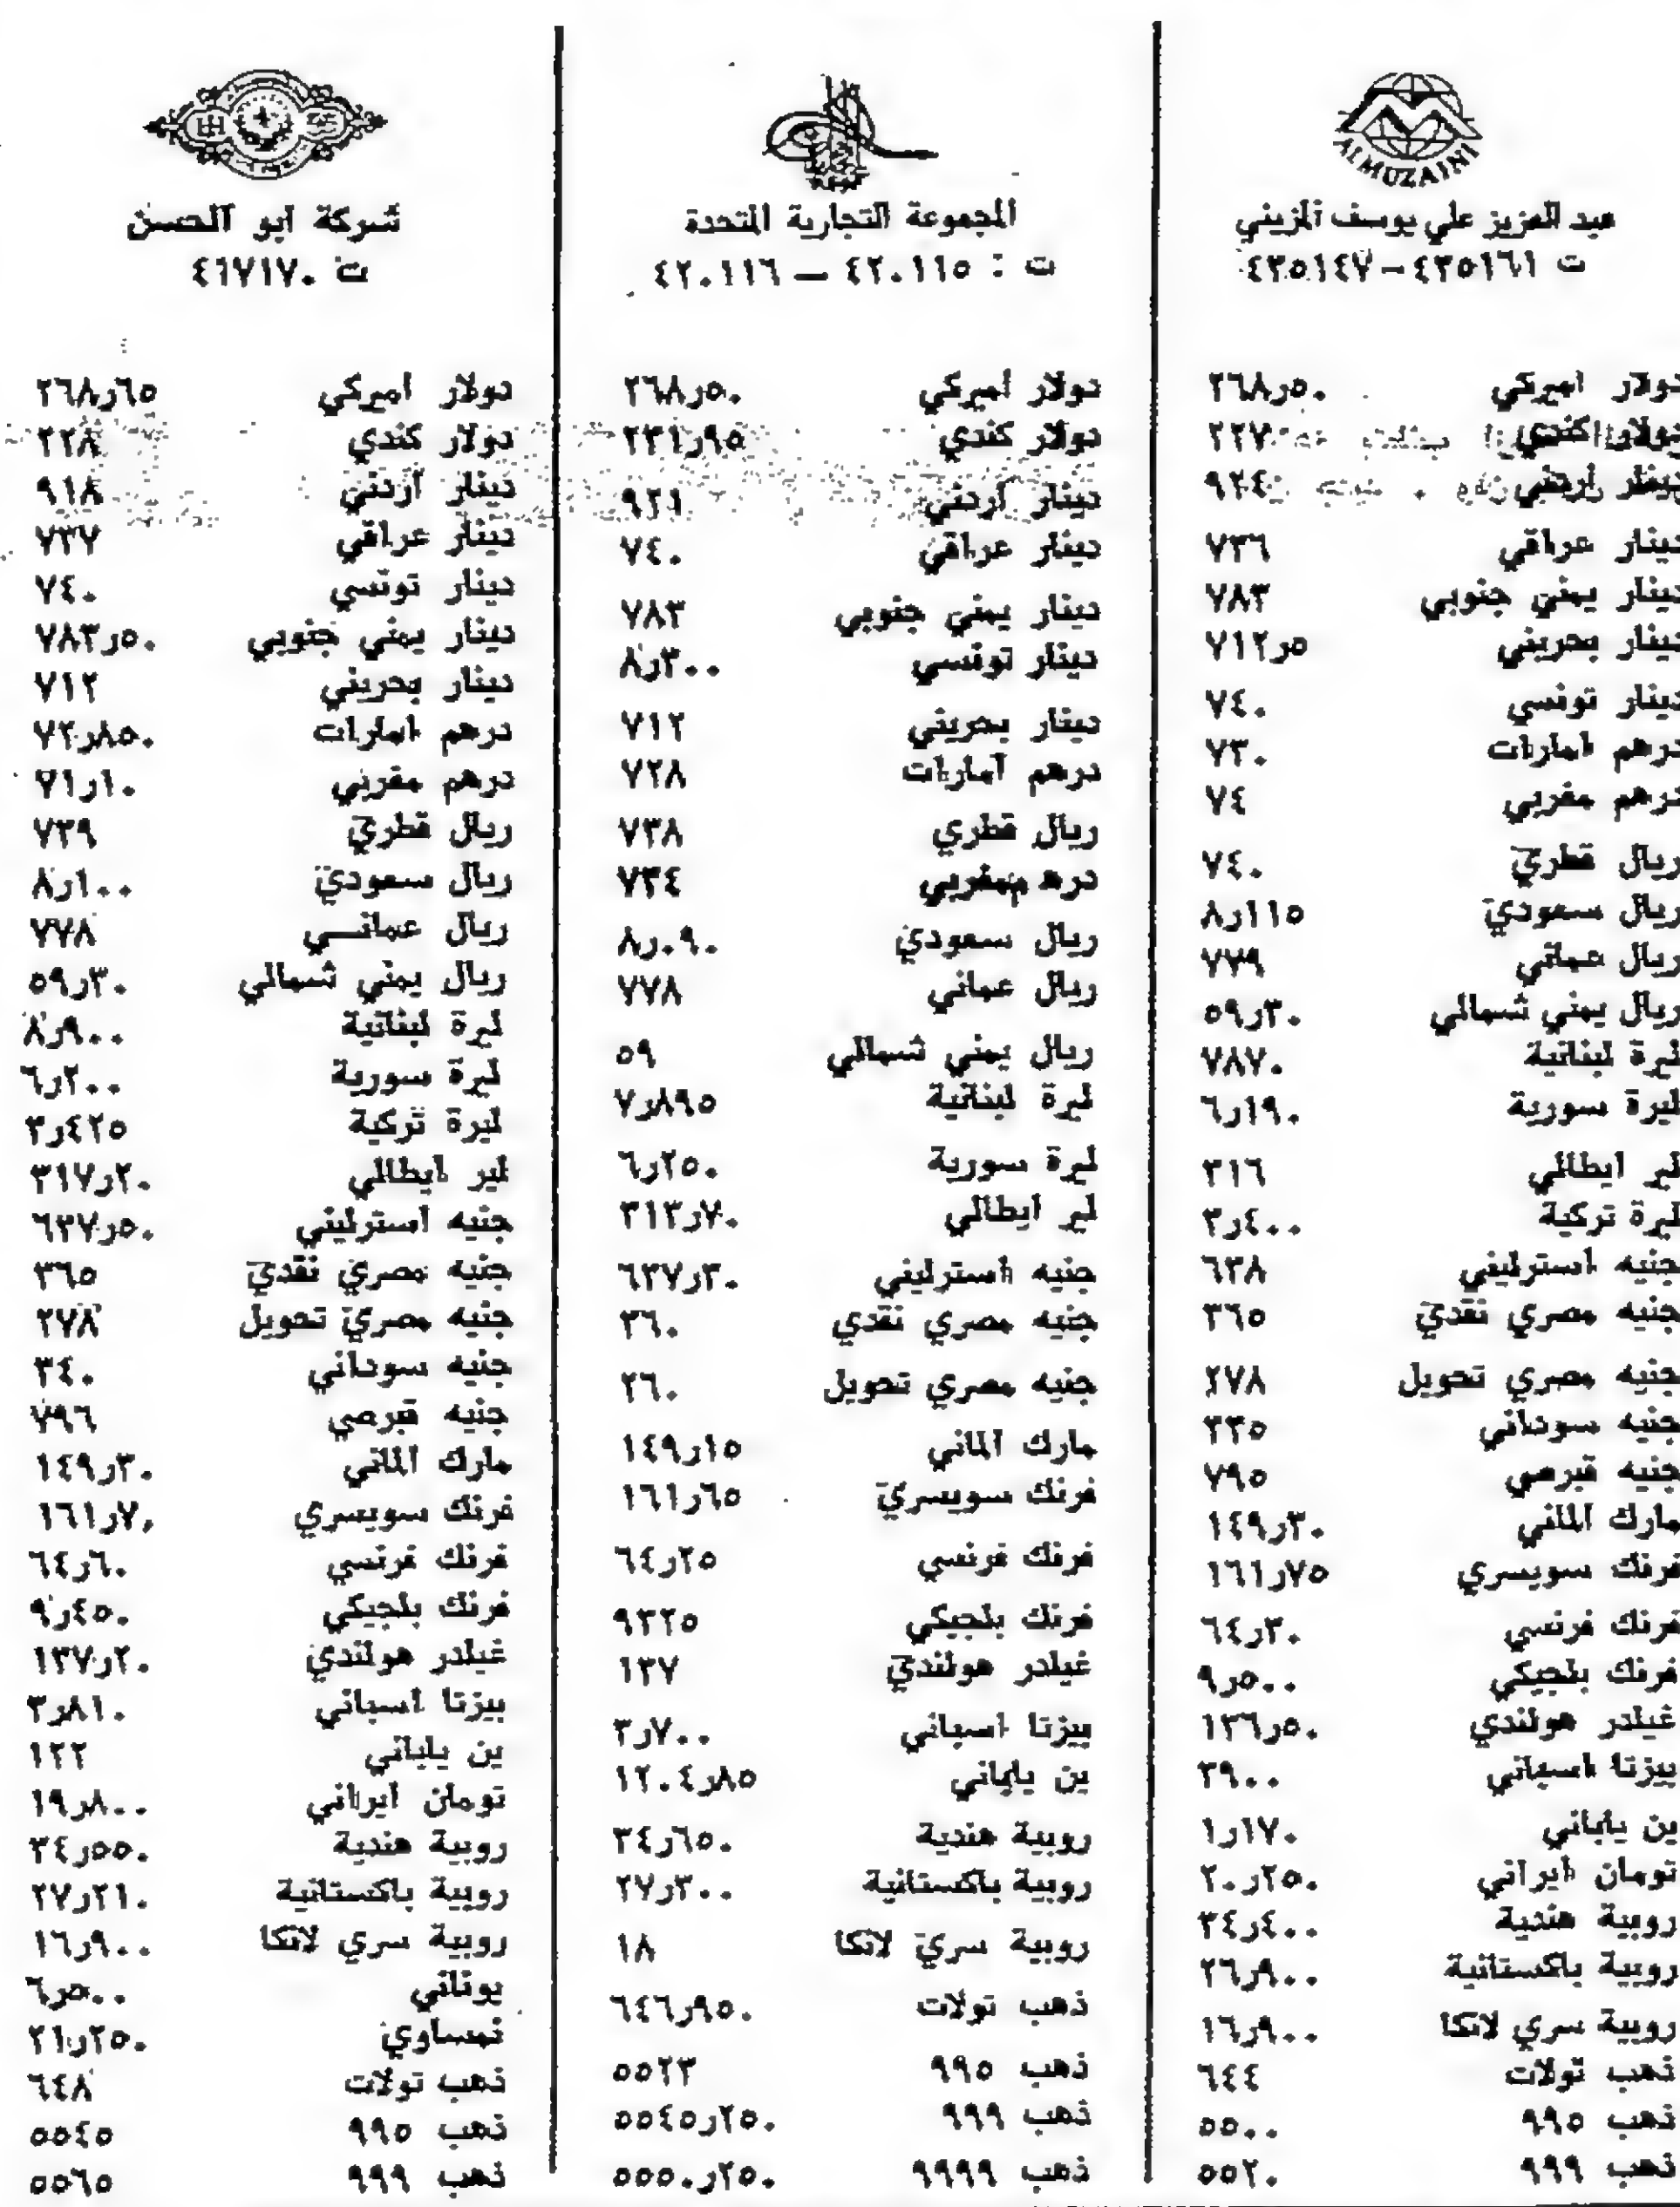 ALMUZAINI
عبد العزيز علي يوسف المزيني
ت ٤٣٥١٦١ - ٤٣٥١٤٧
دولار اميركي ٢٦٨٫٥٠
دولار كندي ٢٢٧
دينار اردني ٩٢٤
دينار عراقي ٧٣٦
دينار يمني جنوبي ٧٨٣
دينار بحريني ٧١٢٫٥
دينار تونسي ٧٤٠
درهم امارات ٧٣٠
درهم مغربي ٧٤
ريال قطري ٧٤٠
ريال سعودي ٨٫١١٥
ريال عماني ٧٧٩
ريال يمني شمالي ٥٩٫٣٠
ليرة لبنانية ٧٨٧٠
ليرة سورية ٦٫١٩٠
لير ايطالي ٣١٦
ليرة تركية ٣٫٤٠٠
جنيه استرليني ٦٣٨
جنيه مصري نقدي ٣٦٥
جنيه مصري تحويل ٢٧٨
جنيه سوداني ٣٣٥
جنيه قبرصي ٧٩٥
مارك الماني ١٤٩٫٣٠
فرنك سويسري ١٦١٫٧٥
فرنك فرنسي ٦٤٫٣٠
فرنك بلجيكي ٩٫٥٠٠
غيلدر هولندي ١٣٦٫٥٠
بيزتا اسباني ٣٩٠٠
ين ياباني ١٫١٧٠
تومان ايراني ٢٠٫٢٥٠
روبية هندية ٣٤٫٤٠٠
روبية باكستانية ٢٦٫٩٠٠
روبية سري لانكا ١٦٫٩٠٠
ذهب تولات ٦٤٤
ذهب ٩٩٥ ٥٥٠٠
ذهب ٩٩٩ ٥٥٢٠
المجموعة التجارية المتحدة
ت : ٤٢٠١١٥ — ٤٢٠١١٦
دولار اميركي ٢٦٨٫٥٠
دولار كندي ٢٣١٫٩٥
دينار اردني ٩٢١
دينار عراقي ٧٤٠
دينار يمني جنوبي ٧٨٣
دينار تونسي ٨٫٣٠٠
دينار بحريني ٧١٢
درهم امارات ٧٢٨
ريال قطري ٧٣٨
درهم مغربي ٧٣٤
ريال سعودي ٨٫٠٩٠
ريال عماني ٧٧٨
ريال يمني شمالي ٥٩
ليرة لبنانية ٧٫٨٩٥
ليرة سورية ٦٫٢٥٠
لير ايطالي ٣١٣٫٧٠
جنيه استرليني ٦٣٧٫٣٠
جنيه مصري نقدي ٣٦٠
جنيه مصري تحويل ٢٦٠
مارك الماني ١٤٩٫١٥
فرنك سويسري ١٦١٫٦٥
فرنك فرنسي ٦٤٫٢٥
فرنك بلجيكي ٩٣٢٥
غيلدر هولندي ١٣٧
بيزتا اسباني ٣٫٧٠٠
ين ياباني ١٢٠٤٫٨٥
روبية هندية ٣٤٫٦٥٠
روبية باكستانية ٢٧٫٣٠٠
روبية سري لانكا ١٨
ذهب تولات ٦٤٦٫٩٥٠
ذهب ٩٩٥ ٥٥٢٣
ذهب ٩٩٩ ٥٥٤٥٫٢٥٠
ذهب ٩٩٩٩ ٥٥٥٠٫٢٥٠
شركة ابو الحسن
ت ٤٦٧١٧٠
دولار اميركي ٢٦٨٫٦٥
دولار كندي ٢٢٨
دينار اردني ٩١٨
دينار عراقي ٧٣٧
دينار تونسي ٧٤٠
دينار يمني جنوبي ٧٨٣٫٥٠
دينار بحريني ٧١٢
درهم امارات ٧٢٫٨٥٠
درهم مغربي ٧١٫١٠
ريال قطري ٧٣٩
ريال سعودي ٨٫١٠٠
ريال عماني ٧٧٨
ريال يمني شمالي ٥٩٫٣٠
ليرة لبنانية ٨٫٩٠٠
ليرة سورية ٦٫٢٠٠
ليرة تركية ٣٫٤٢٥
لير ايطالي ٣١٧٫٢٠
جنيه استرليني ٦٣٧٫٥٠
جنيه مصري نقدي ٣٦٥
جنيه مصري تحويل ٢٧٨
جنيه سوداني ٣٤٠
جنيه قبرصي ٧٩٦
مارك الماني ١٤٩٫٣٠
فرنك سويسري ١٦١٫٧٠
فرنك فرنسي ٦٤٫٦٠
فرنك بلجيكي ٩٫٤٥٠
غيلدر هولندي ١٣٧٫٢٠
بيزتا اسباني ٣٫٨١٠
ين ياباني ١٢٢
تومان ايراني ١٩٫٨٠٠
روبية هندية ٣٤٫٥٥٠
روبية باكستانية ٢٧٫٢١٠
روبية سري لانكا ١٦٫٩٠٠
يوناني ٦٫٥٠٠
نمساوي ٢١٫٢٥٠
ذهب تولات ٦٤٨
ذهب ٩٩٥ ٥٥٤٥
ذهب ٩٩٩ ٥٥٦٥